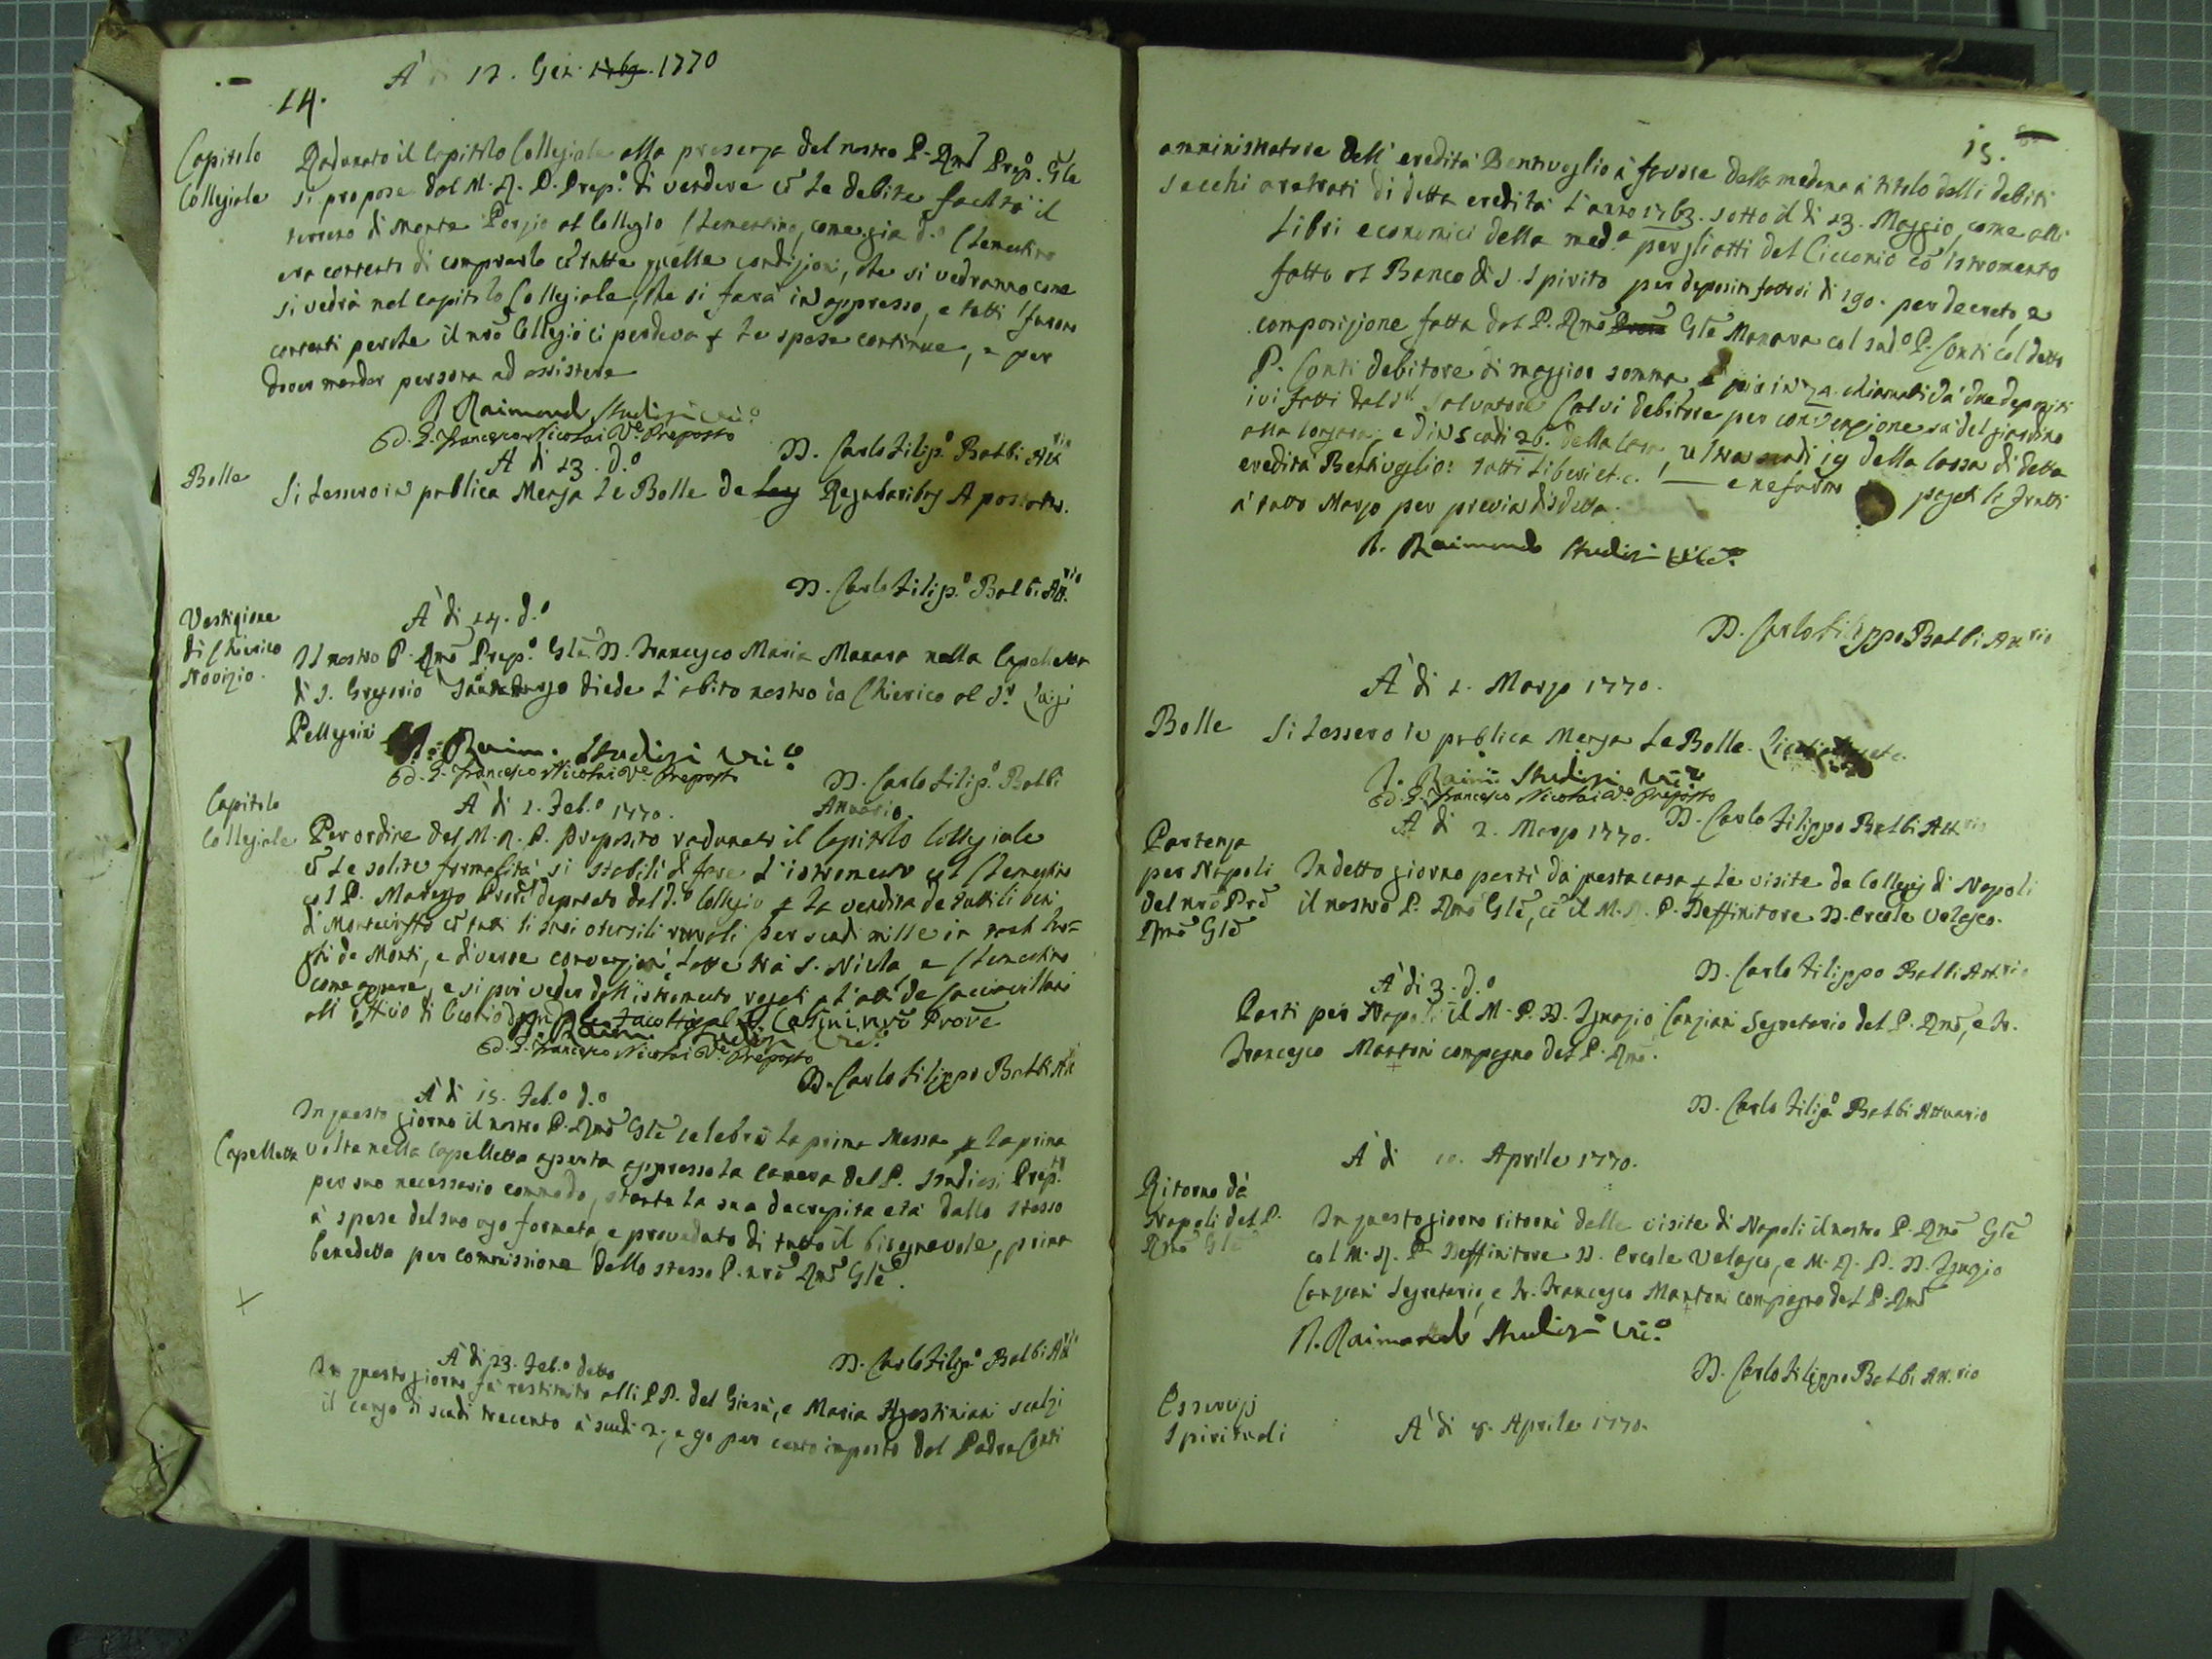 14.
A di 12. Gen. 1769. 1770
Capitolo
Collegiale
Radunato il Capitolo Collegiale alla presenza del nostro P. Rmo Prep.o Gle
si propose dal M. R. P. Prep.o di vendere cō le debite facltà il
terreno di Monte Porzio al Collegio Clementino, come già d.o Clementino
era contento di comprarlo cō tutte quelle condizioni, che si vedranno come
si vedrà nel Capitolo Collegiale, che si farà in appresso, e tutti furono
contenti perche il nrō Collegio ci perdeva p le spese continue, e per
dover mandar persona ad assistere
R. Raimond Studizi Vic.o
D. G. Francesco Nicolai Ve. Preposto
D. Carlo Filip.o Balbi Att.rio
A di 13. d.o
Bolle
Si lessero in publica Mensa le Bolle de Regularibus Apostatis.
D. Carlo Filip.o Balbi Att.rio
Vestizione
di Chierico
Novizio.
A di 14. d.o
Il nostro P. Rmō Prep.o Glē D. Francesco Maria Manara nella Capelletta
di S. Gregorio diede l'abito nostro da Chierico al S.r Luigi
Pellegrini
Raim. Studizi Vic.o
D. G. Francesco Nicolai Ve. Preposto
D. Carlo Filip.o Balbi
Attuario.
Capitolo
Collegiale
A di 1. Feb.o 1770.
Per ordine del M. R. P. Preposito radunato il Capitolo Collegiale
cō le solite formalità si stabilì di fare l'istromento col Clementino
col P. deputato dal d.o Collegio p la vendita de tutti li beni
di cō tutti li suoi utensili per scudi mille in
de Monti, e diverse convenzioni fatte trà S. Nicola e Clementino
come appare, e si può veder dall'istromento rogati p l'atti de
all'Offitio di nrō Prove
Raim. Studizi Vic.o
D. G. Francesco Nicolai Ve. Preposto
D. Carlo Filippo Balbi Att
A di 15. Feb.o d.o
Capelletta
In questo giorno il nostro P. Rmō Glē celebrò la prima Messa p la prima
volta nella Capelletta aperta appresso la Camera del P. Studiosi Prep.to
per suo necessario commodo, stante la sua decrepita età dallo stesso
à spese del suo formata, e proveduto di tutto il bisognevole, prima
benedetta per commissione dello stesso P. nrō Rmō Glē.
D. Carlo Filip.o Balbi Att
A di 23. Feb.o detto
In questo giorno fu restituito alli PP. del Giesù, e Maria Agostiniani scalzi
il censo di scudi trecento à scudi 2, e 90 per cento imposto dal Padre Conti
15.
amministratore dell'eredità Bentivoglio à favore della medema à titolo delli debiti
secchi aretrati di detta eredità l'anno 1763. sotto il dì 23. Maggio, come alli
libri economici della med.a per gli atti del Cicconio cō istromento
fatto al Banco di S. Spirito per depositi fattosi di 190. per decreto, e
composizione fatta dal P. Rmō Glē Manara col sud.o P. Conti col detto
P. Conti debitore di maggior somma e più in da due depositi
ivi fatti dal S.r Salvatore Calvi debitore per del giardino
alla e di scudi 26. della Casa, scudi 19 della Cassa di detta
eredità Bentivoglio: tutti liberi et.c. — e ne furono pagati li frutti
à tutto Marzo per previa disdetta.
R. Raimondo Studizi Vic.o
D. Carlo Filippo Balbi Att.rio
A di 1. Marzo 1770.
Bolle
Si lessero in publica Mensa le Bolle.
R. Raim. Studizi Vic.o
D. G. Francesco Nicolai Ve. Preposto
D. Carlo Filippo Balbi Att.rio
A di 2. Marzo 1770.
Partenza
per Napoli
del nrō Prē
Rmō Glē
In detto giorno partì da questa casa p le visite de Collegij di Napoli
il nostro P. Rmō Glē, cō il M. R. P. Deffinitore D. Ercole Velasco.
D. Carlo Filippo Balbi Att.rio
A di 3. d.o
Partì per Napoli il M. P. D. Ignazio Canziani Segretario del P. Rmō, e Fr.
Francesco Mantoni compagno del P. Rmō.
D. Carlo Filip.o Balbi Attuario
A di 10. Aprile 1770.
Ritorno dà
Napoli del P.
Rmō Glē
In questo giorno ritornò dalle visite di Napoli il nostro P. Rmō Glē
col M. R. P. Deffinitore D. Ercole Velasco, e M. R. P. D. Ignazio
Canziani Segretario, e Fr. Francesco Mantoni compagno del P. Rmō
R. Raimondo Studizi Vic.o
D. Carlo Filippo Balbi Att.rio
Essercizj
Spirituali
A di 8. Aprile 1770.